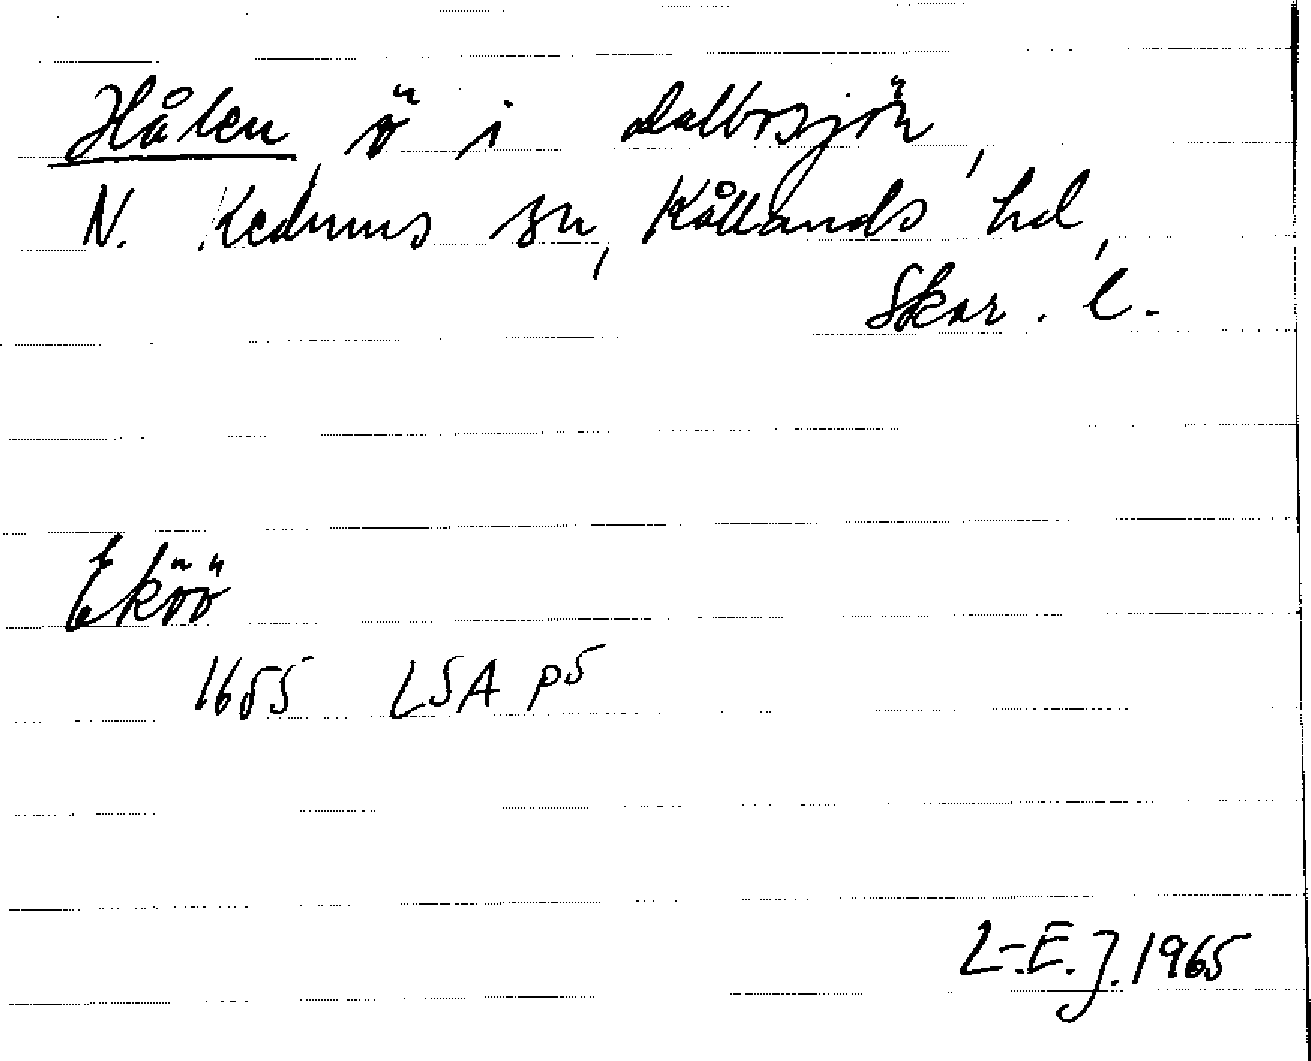 Hålen, ö i Dalbosjön,
N. Kedums sn, Kållands hd,
Skar. l.
Eköö
1655 LSA p5
L-E.J. 1965